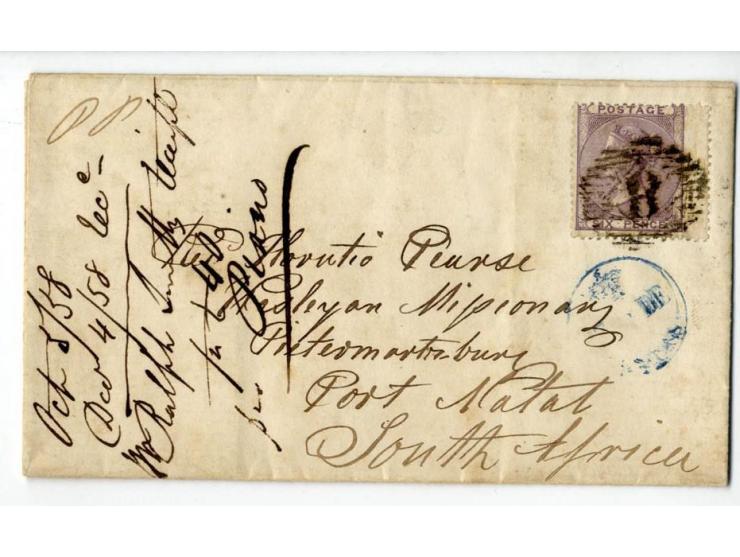 POSTAGE
SIX PENCE
8
Rev. Horatio Pearse
Wesleyan Missionary
Pietermaritzburg
Port Natal
South Africa
Oct 8/58
Decr 4/58 Recc
Mr Ralph Smith
Piano